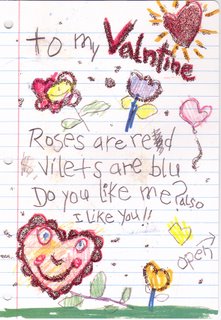 to my Valntine
Roses are red
Vilets are blu
Do you like me? also
I like You!!
open